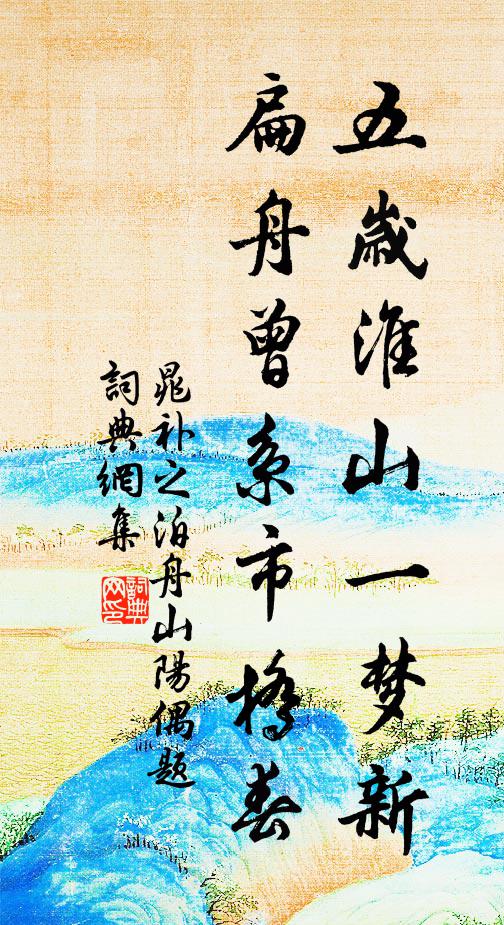 五歲淮山一梦新
扁舟曾系市橋春
晁补之泊舟山陽偶題
詞典網集